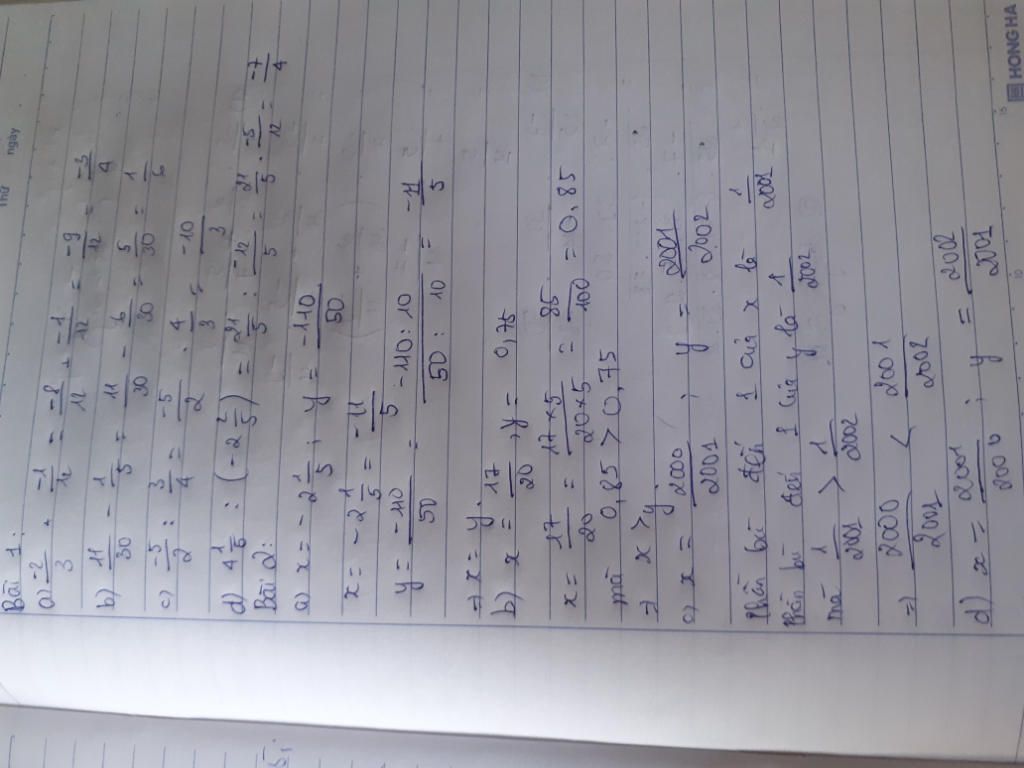 Thứ
ngày
Bài 1:
a) -2/3 + -1/12 = -8/12 + -1/12 = -9/12 = -3/4
b) 11/30 - 1/5 = 11/30 - 6/30 = 5/30 = 1/6
c) -5/2 : 3/4 = -5/2 . 4/3 = -10/3
d) 4 1/5 : (-2 2/5) = 21/5 : -12/5 = 21/5 . -5/12 = -7/4
Bài 2:
a) x = -2 1/5 ; y = -110/50
x = -2 1/5 = -11/5
y = -110/50 = -110:10/50:10 = -11/5
=> x = y.
b) x = 17/20 ; y = 0,75
x = 17/20 = 17×5/20×5 = 85/100 = 0,85
mà 0,85 > 0,75
=> x > y
c) x = 2000/2001 ; y = 2001/2002
Phần bù đến 1 của x là 1/2001
Phần bù đến 1 của y là 1/2002
mà 1/2001 > 1/2002
=> 2000/2001 < 2001/2002
d) x = 2001/2000 ; y = 2002/2001
HONG HA